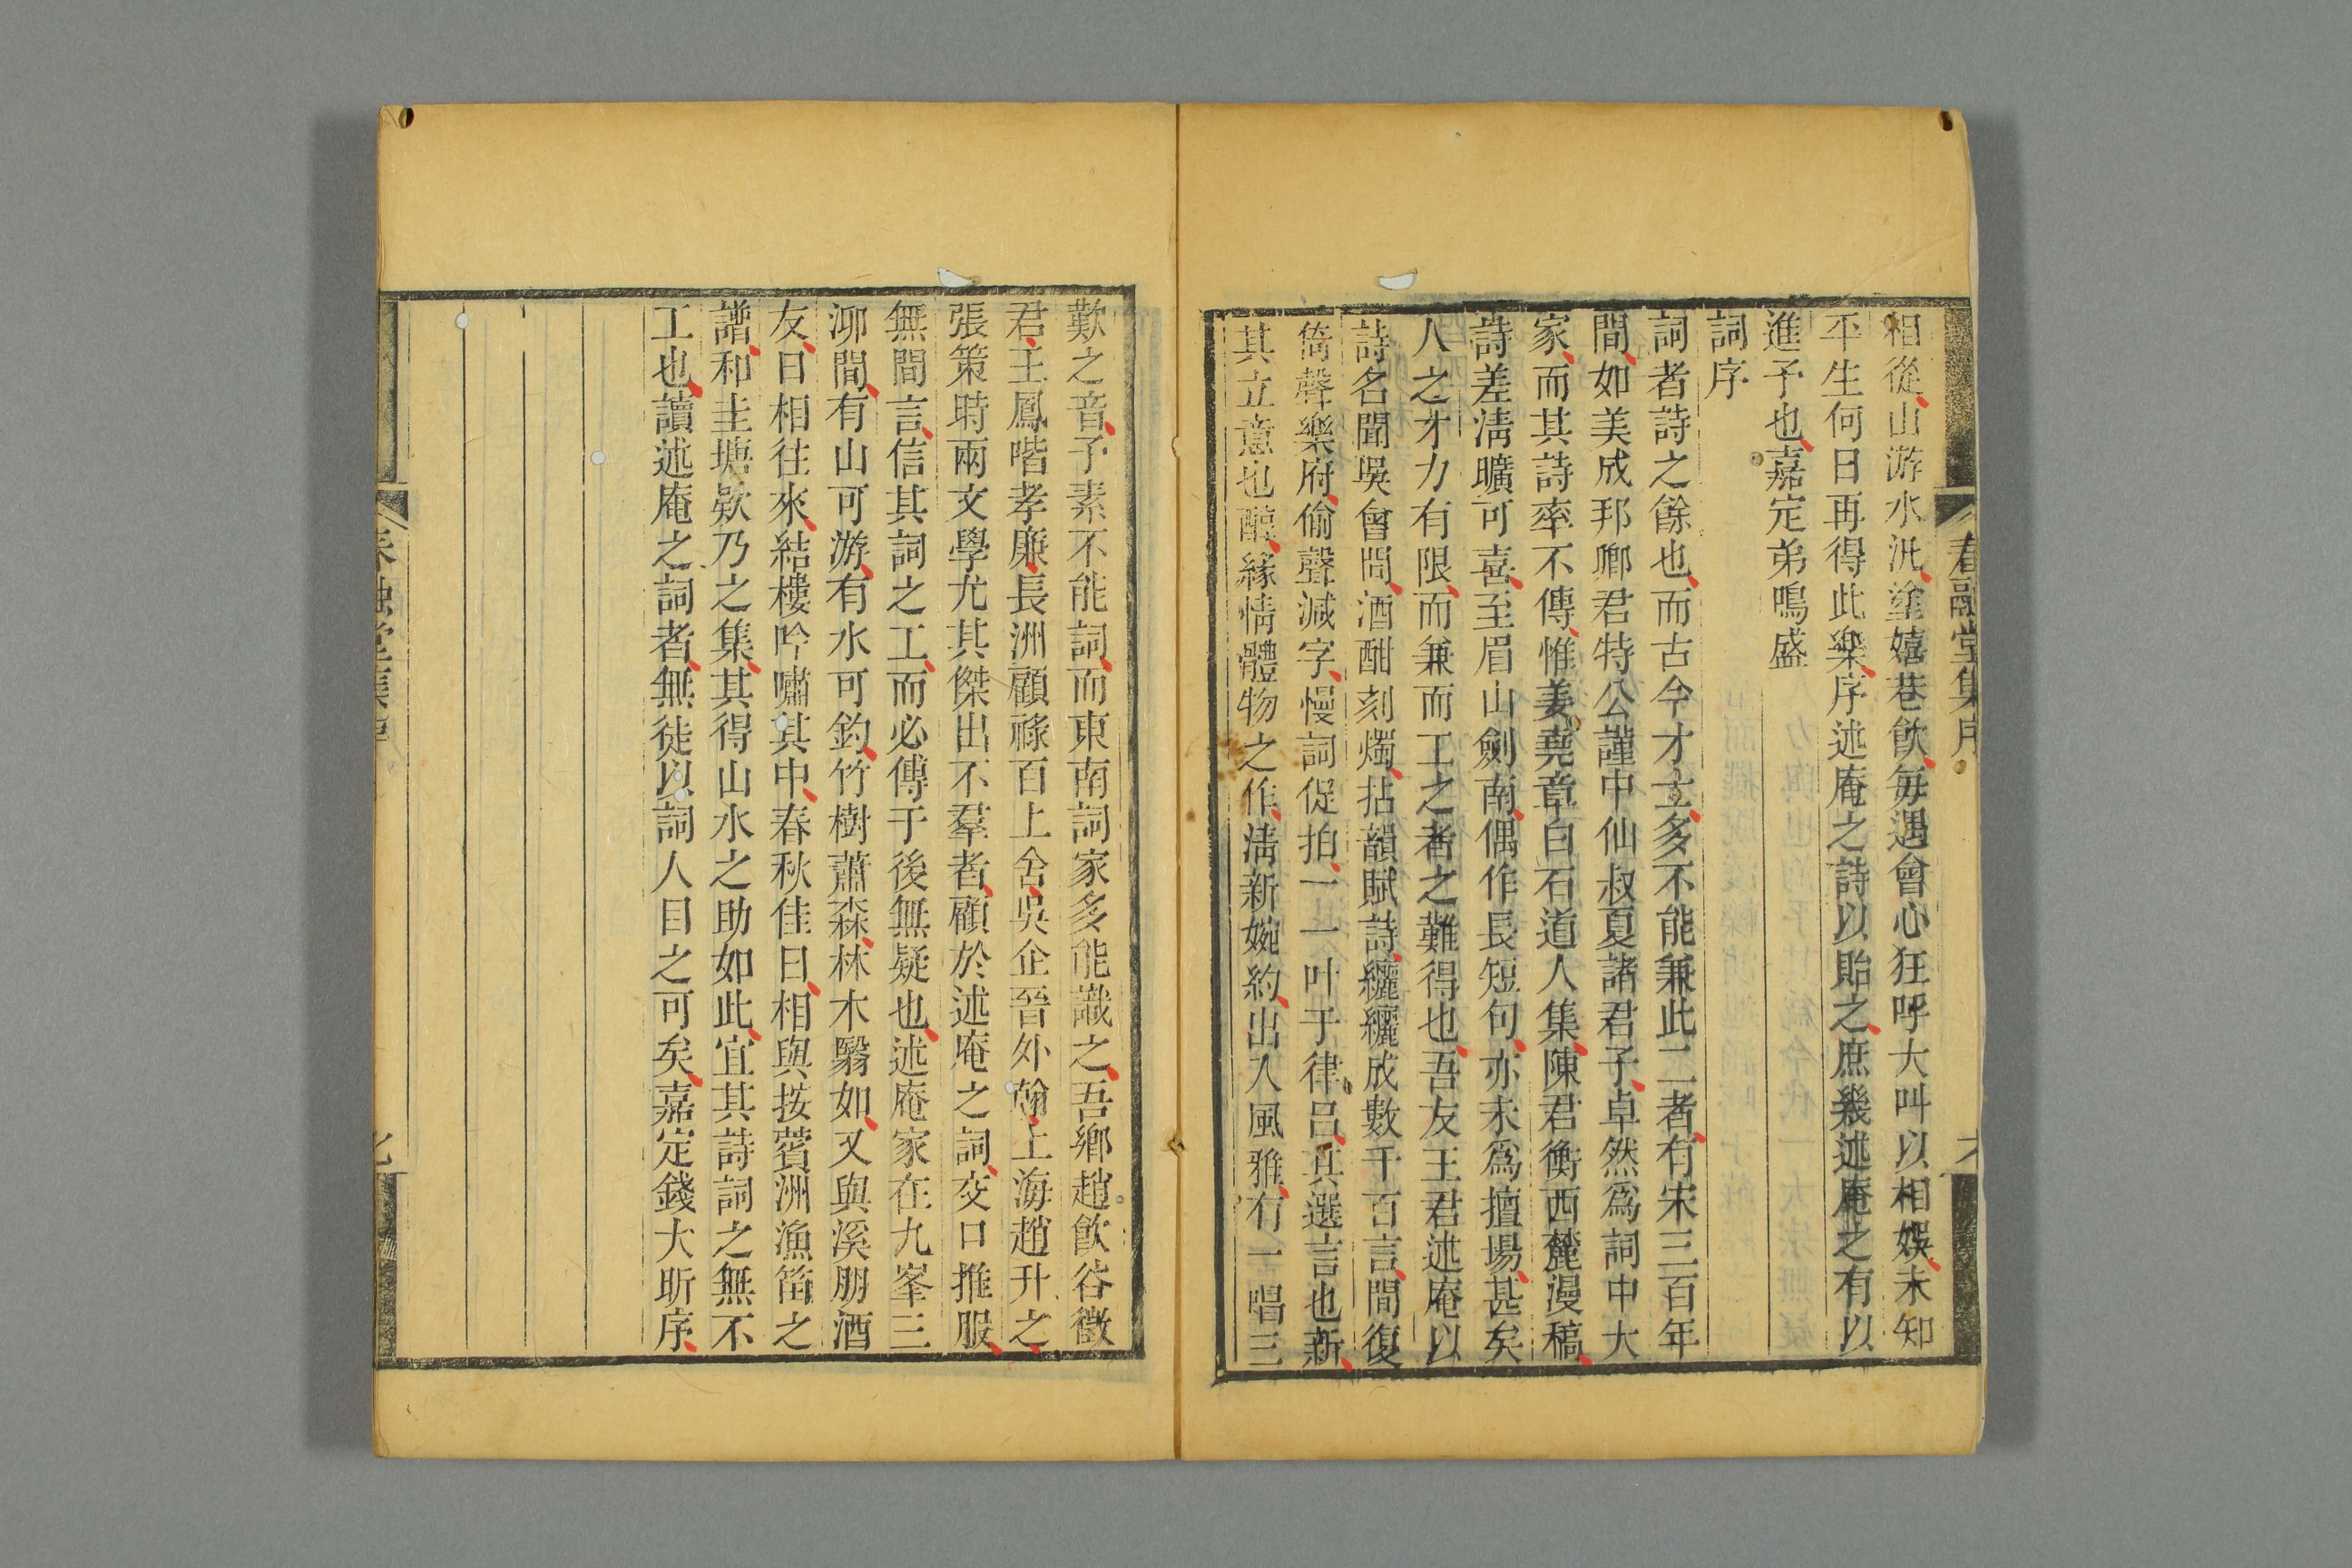 春融堂集序
相從山游水汎塗嬉巷飲每遇會心狂呼大叫以相娛未知
平生何日再得此樂序述庵之詩以貽之庶幾述庵之有以
進予也嘉定弟鳴盛
詞序
詞者詩之餘也而古今才士多不能兼此二者有宋三百年
間如美成邦卿君特公謹中仙叔夏諸君子卓然爲詞中大
家而其詩率不傳惟姜堯章白石道人集陳君衡西麓漫稿
詩差清曠可喜至眉山劍南偶作長短句亦未爲擅塲甚矣
人之才力有限而兼而工之者之難得也吾友王君述庵以
詩名聞吳會間酒酣刻燭拈韻賦詩纚纚成數千百言間復
倚聲樂府偷聲減字慢詞促拍一一叶于律呂其選言也新
其立意也醇緣情體物之作清新婉約出入風雅有一唱三
歎之音予素不能詞而東南詞家多能識之吾鄉趙飮谷徵
君王鳳喈孝廉長洲顧祿百上舍吳企晉外翰上海趙升之
張策時兩文學尤其傑出不羣者顧於述庵之詞交口推服
無間言信其詞之工而必傳于後無疑也述庵家在九峯三
泖間有山可游有水可釣竹樹蕭森林木翳如又與溪朋酒
友日相往來結樓吟嘯其中春秋佳日相與按薲洲漁笛之
譜和圭塘欵乃之集其得山水之助如此宜其詩詞之無不
工也讀述庵之詞者無徒以詞人目之可矣嘉定錢大昕序
春融堂集序